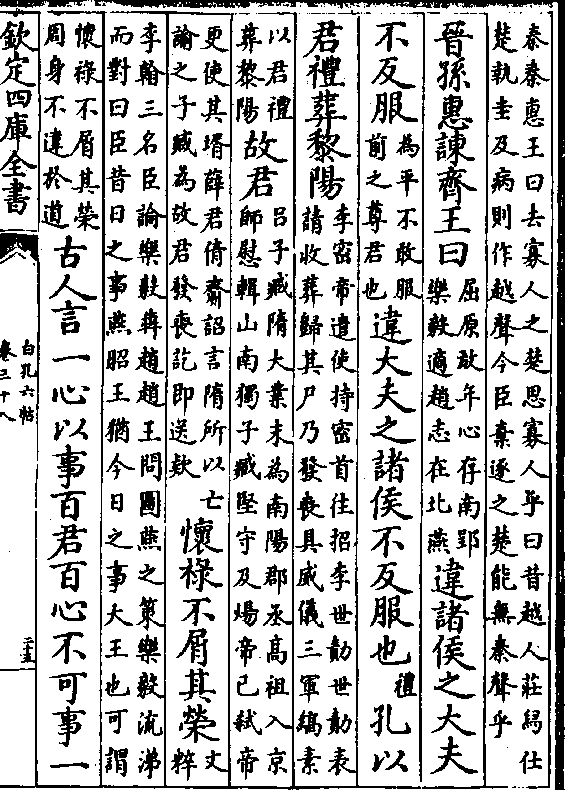 秦秦惠王曰去寡人之楚思寡人乎曰昔越人莊舄仕
楚執圭及病則作越聲今臣棄逐之楚能無秦聲乎
晉孫惠諫齊王曰屈原放年心存南郢
樂毅適趙志在北燕違諸侯之大夫
不反服為平不敢服
前之尊君也違大夫之諸侯不反服也禮孔以
君禮葬黎陽李密帝遣使持密首往招李世勣世勣表
請收葬歸其尸乃發喪具威儀三軍縞素
以君禮
葬黎陽故君呂子臧隋大業末為南陽郡丞高祖入京
師慰輯山南獨子臧堅守及煬帝已弒帝
更使其壻薛君倩齎詔言隋所以亡
諭之子臧為故君發喪訖即送欵懷祿不屑其榮文
粹
李翰三名臣論樂毅犇趙趙王問圖燕之策樂毅流涕
而對曰臣昔日之事燕昭王猶今日之事大王也可謂
懷祿不屑其榮
周身不違於道古人言一心以事百君百心不可事一
欽定四庫全書
白孔六帖
卷三十八
二十五